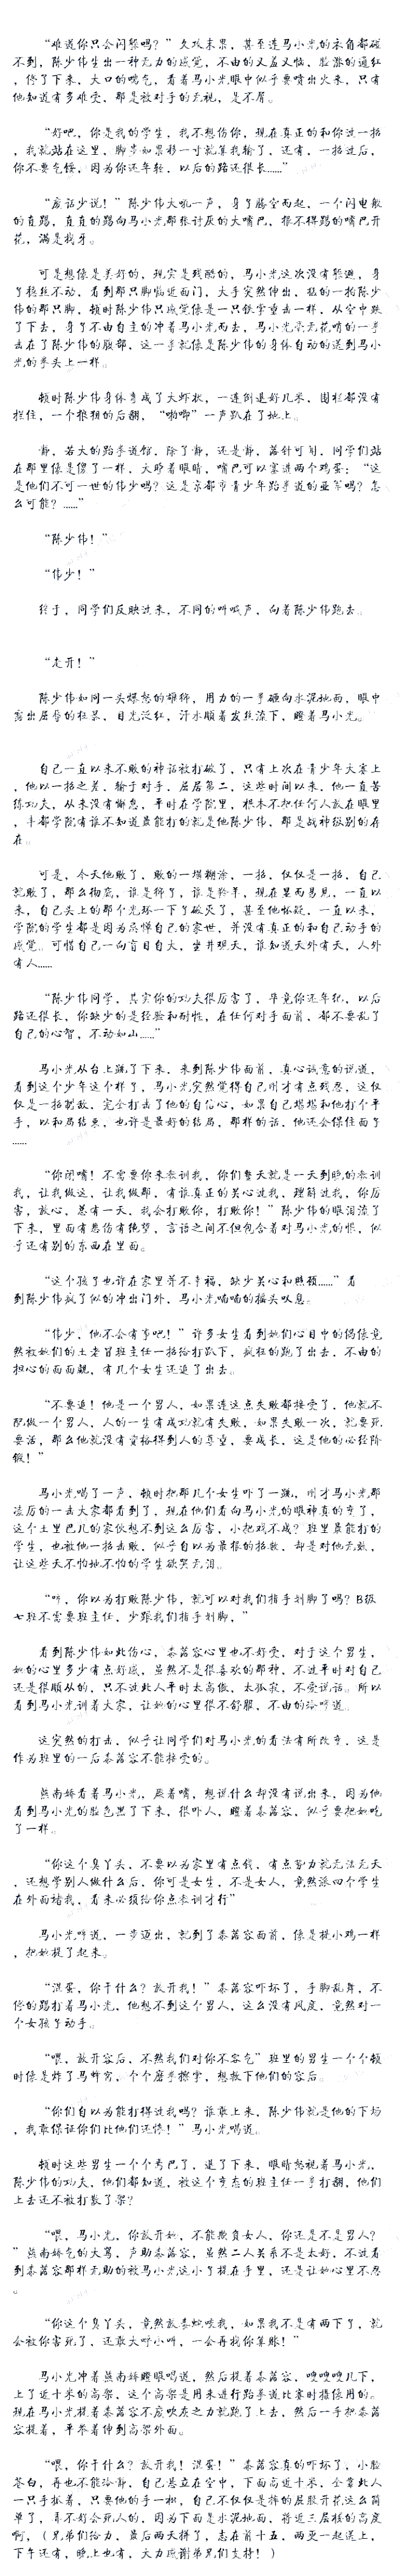 “难道你只会闪躲吗？”久攻未果，甚至连马小光的衣角都碰
不到，陈少伟生出一种无力的感觉，不由的又羞又恼，脸涨的通红
，停了下来，大口的喘气，看着马小光眼中似乎要喷出火来，只有
他知道有多难受，那是被对手的无视，是不屑。
“好吧，你是我的学生，我不想伤你，现在真正的和你过一招
，我就站在这里，脚步如果移一寸就算我输了，还有，一招过后，
你不要气馁，因为你还年轻，以后的路还很长……”
“废话少说！”陈少伟大吼一声，身子腾空而起，一个闪电般
的直踢，直直的踢向马小光那张讨厌的大嘴巴，恨不得踢的嘴巴开
花，满是找牙。
可是想像是美好的，现实是残酷的，马小光这次没有躲避，身
子稳丝不动，看到那只脚临近面门，大手突然伸出，猛的一拍陈少
伟的那只脚，顿时陈少伟只感觉像是一只铁掌重击一样，从空中跌
了下去，身子不由自主的冲着马小光而去，马小光毫无花哨的一拳
击在了陈少伟的腹部，这一拳就像是陈少伟的身体自动的送到马小
光的拳头上一样。
顿时陈少伟身体弯成了大虾状，一连倒退好几米，围栏都没有
拦住，一个狼狈的后翻，“啪唧”一声趴在了地上。
静，若大的跆拳道馆，除了静，还是静，落针可闻，同学们站
在那里像是傻了一样，大睁着眼睛，嘴巴可以塞进两个鸡蛋：“这
是他们不可一世的伟少吗？这是京都市青少年跆拳道的亚军吗？怎
么可能？……”
“陈少伟！”
“伟少！”
终于，同学们反映过来，不同的呼喊声，向着陈少伟跑去。
“走开！”
陈少伟如同一头爆怒的雄狮，用力的一拳砸向水泥地面，眼中
露出屈辱的狂暴，目光泛红，汗水顺着发丝流下，瞪着马小光。
自己一直以来不败的神话被打破了，只有上次在青少年大赛上
，他以一招之差，输于对手，屈居第二，这些时间以来，他一直苦
练功夫，从来没有懈怠，平时在学院里，根本不把任何人放在眼里
，丰都学院有谁不知道最能打的就是他陈少伟，那是战神级别的存
在。
可是，今天他败了，败的一塌糊涂，一招，仅仅是一招，自己
就败了，那么彻底，谁是狮子，谁是羚羊，现在显而易见，一直以
来，自己头上的那个光环一下子破灭了，甚至他怀疑，一直以来，
学院的学生都是因为忌惮自己的家世，并没有真正的和自己动手的
感觉。可惜自己一向盲目自大，坐井观天，谁知道天外有天，人外
有人……
“陈少伟同学，其实你的功夫很厉害了，毕竟你还年轻，以后
路还很长，你缺少的是经验和耐性，在任何对手面前，都不要乱了
自己的心智，不动如山……”
马小光从台上跳了下来，来到陈少伟面前，真心诚意的说道，
看到这个少年这个样子，马小光突然觉得自己刚才有点残忍，这仅
仅是一招制敌，完全打击了他的自信心，如果自己堪堪和他打个平
手，以和局结束，也许是最好的结局，那样的话，他还会保住面子
……
“你闭嘴！不需要你来教训我，你们整天就是一天到晚的教训
我，让我做这，让我做那，有谁真正的关心过我，理解过我，你厉
害，放心，总有一天，我会打败你，打败你！”陈少伟的眼泪流了
下来，里面有悲伤有绝望，言语之间不但包含着对马小光的恨，似
乎还有别的东西在里面。
“这个孩子也许在家里并不幸福，缺少关心和照顾……”看
到陈少伟疯了似的冲出门外，马小光喃喃的摇头叹息。
“伟少，他不会有事吧！”许多女生看到她们心目中的偶像竟
然被她们的土老冒班主任一招给打趴下，疯狂的跑了出去，不由的
担心的面面觑，有几个女生还追了出去。
“不要追！他是一个男人，如果连这点失败都接受了，他就不
配做一个男人，人的一生有成功就有失败，如果失败一次，就要死
要活，那么他就没有资格得到人的尊重，要成长，这是他的必经阶
段！”
马小光喝了一声，顿时把那几个女生吓了一跳，刚才马小光那
凌厉的一击大家都看到了，现在他们看向马小光的眼神真的变了，
这个土里巴几的家伙想不到这么厉害，小把戏不成？班里最能打的
学生，也被他一招击败，似乎自以为最狠的招数，却是对他无效，
让这些天不怕地不怕的学生欲哭无泪。
“哼，你以为打败陈少伟，就可以对我们指手划脚了吗？B级
七班不需要班主任，少跟我们指手划脚，”
看到陈少伟如此伤心，秦蓉容心里也不好受，对于这个男生，
她的心里多少有点好感，虽然不是很喜欢的那种，不过平时对自己
还是很顺从的，只不过此人平时太高傲，太孤寂，不爱说话。所以
看到马小光训着大家，让她的心里很不舒服，不由的冷哼道。
这突然的打击，似乎让同学们对马小光的看法有所改变，这是
作为班里的一后秦蓉容不能接受的。
燕南婷看着马小光，咬着嘴，想说什么却没有说出来，因为他
看到马小光的脸色黑了下来，很吓人，瞪着秦蓉容，似乎要把她吃
了一样。
“你这个臭丫头，不要以为家里有点钱，有点势力就无法无天
，还想学别人做什么后，你可是女生，不是女人，竟然派四个学生
在外面堵我，看来必须给你点教训才行”
马小光哼道，一步迈出，就到了秦蓉容面前，像是提小鸡一样
，把她提了起来。
“混蛋，你干什么？放开我！”秦蓉容吓坏了，手脚乱舞，不
停的踢打着马小光，他想不到这个男人，这么没有风度，竟然对一
个女孩子动手。
“喂，放开容后，不然我们对你不客气”班里的男生一个个顿
时像是炸了马蜂窝，个个磨拳擦掌，想救下他们的容后。
“你们自以为能打得过我吗？谁敢上来，陈少伟就是他的下场
，我敢保证你们比他们还惨！”马小光喝道。
顿时这些男生一个个弯巴了，退了下来，眼睛怒视着马小光，
陈少伟的功夫，他们都知道，被这个变态的班主任一拳打翻，他们
上去还不被打散了架？
“喂，马小光，你放开她，不能欺负女人，你还是不是男人？
”燕南婷气的大骂，声助秦蓉容，虽然二人关系不是太好，不过看
到秦蓉容那样无助的被马小光这小子提在手里，还是让她心里不忍
。
“你这个臭丫头，竟然放毒蛇咬我，如果我不是有两下子，就
会被你害死了，还敢大呼小叫，一会再找你算账！”
马小光冲着燕南婷瞪眼喝道，然后提着秦蓉容，嗖嗖嗖几下，
上了近十米的高架，这个高架是用来进行跆拳道比赛时摄像用的。
现在马小光提着秦蓉容不废吹灰之力就跳了上去，然后一手把秦蓉
容提着，平举着伸到高架外面。
“喂，你干什么？放开我！混蛋！”秦蓉容真的吓坏了，小脸
苍白，再也不能冷静，自己悬立在空中，下面高近十米，全靠此人
一只手抓着，只要他的手一松，自己不仅仅是摔的屁股开花这么简
单了，弄不好会死人的，因为下面是水泥地面，将近三层楼的高度
啊，（兄弟们给力，最后两天拼了，志在前十五，两更一起送上，
下午还有，晚上也有，大力感谢弟兄们支持！）